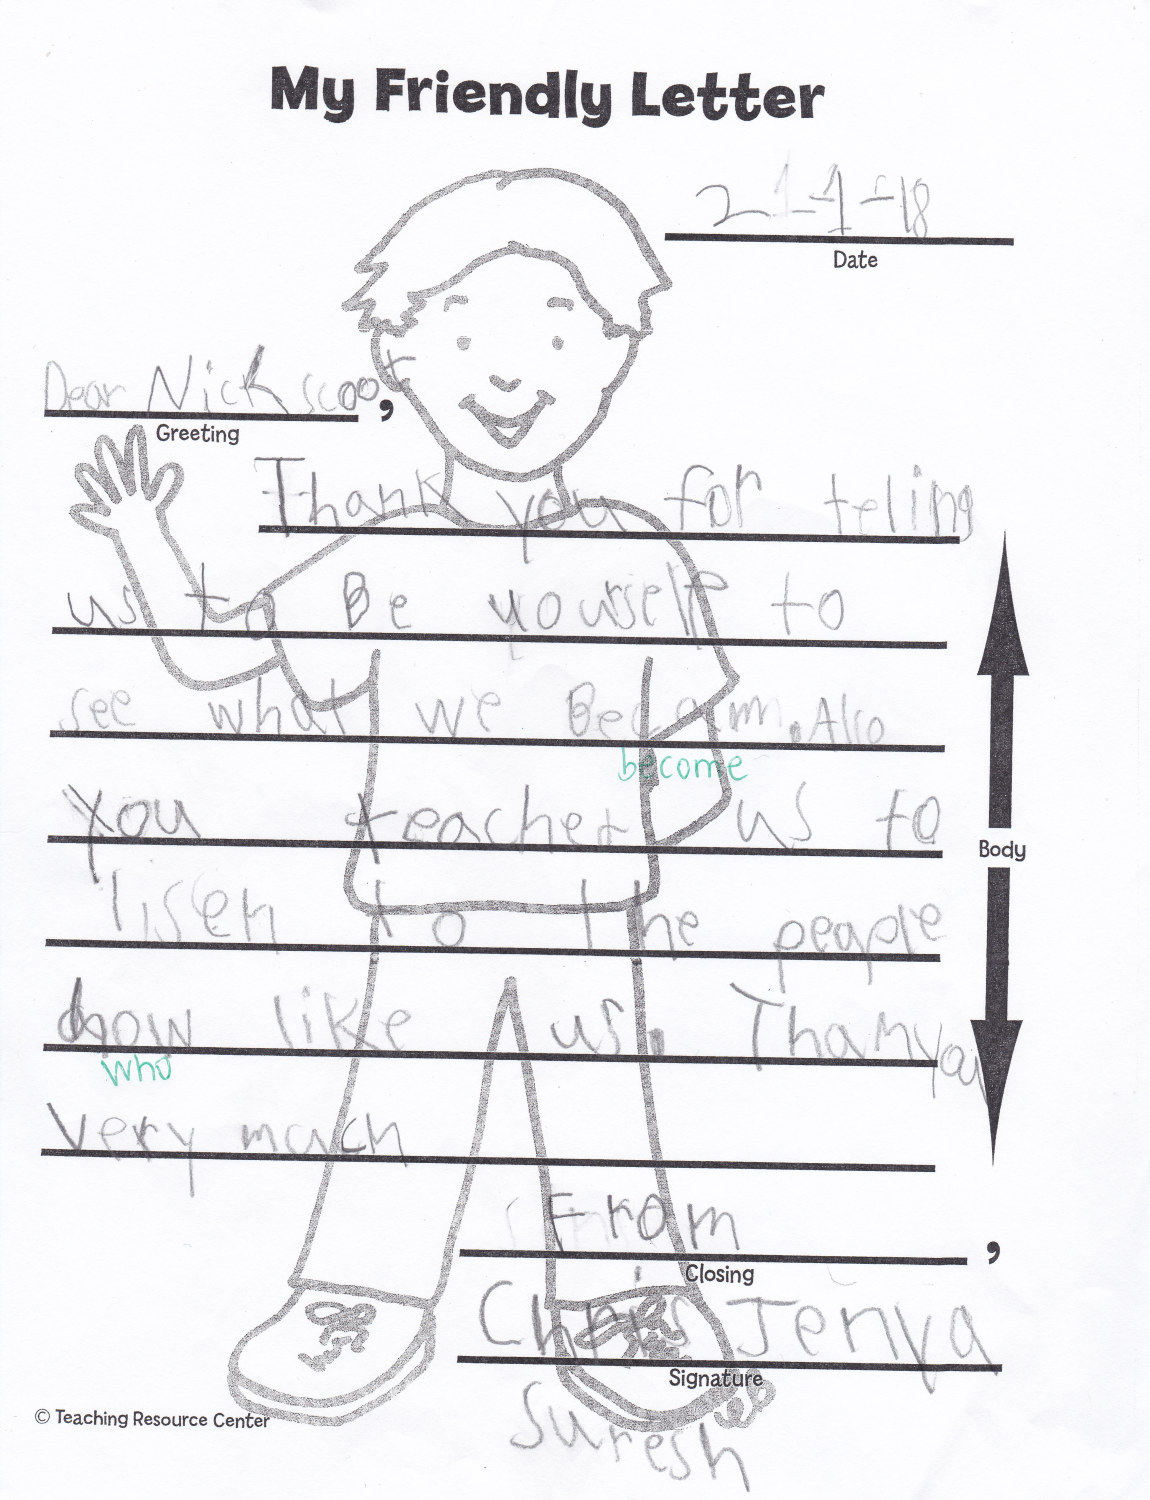 My Friendly Letter
21-1-18
Date
Dear Nick scoot,
Greeting
Thank you for teling
us to Be yourself to
see what we Becaim. Also
become
you teacher us to
lisen to the peaple
Body
how like us. Thanyou
who
very much
From,
Closing
Chris Jenya
Signature
Suresh
© Teaching Resource Center